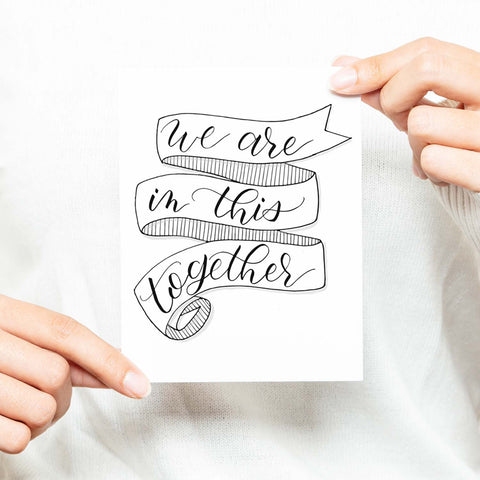 we are
in this
together